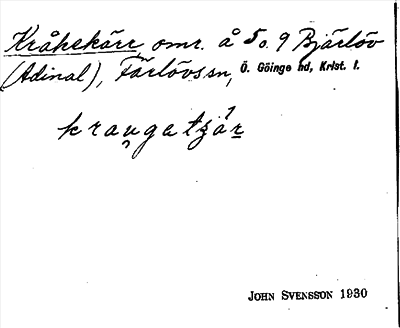 Kråkekärr, omr. å 5 o. 9 Bjärlöv
(Adinal), Färlövs sn, Ö. Göinge hd, Krist. l.
kraugatjár
JOHN SVENSSON 1930